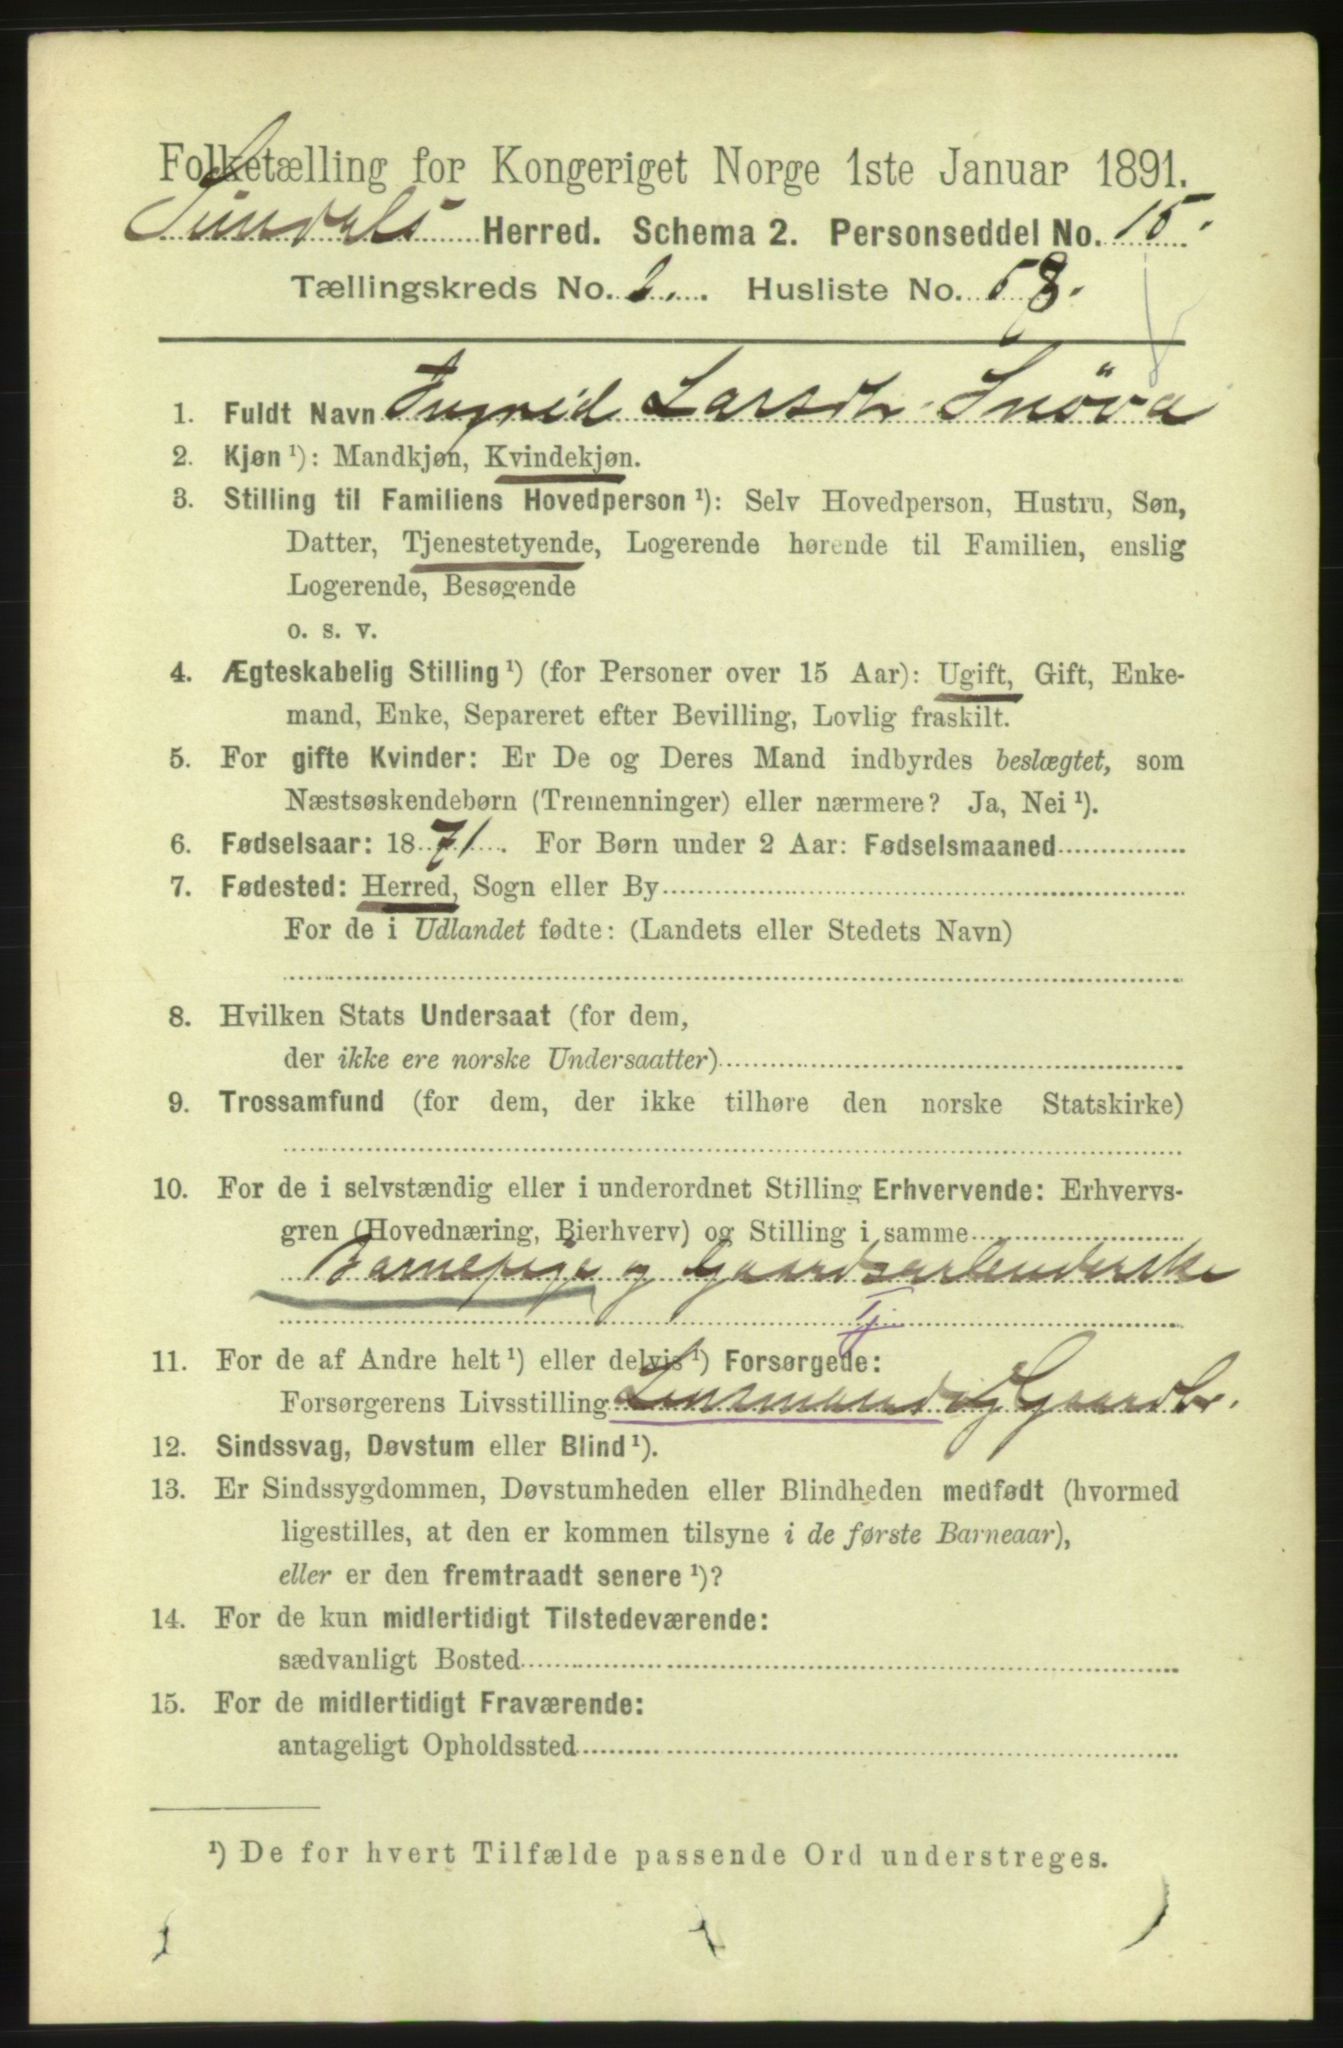 Folketælling for Kongeriget Norge 1ste Januar 1891.
Sundals Herred. Schema 2. Personseddel No. 15.
Tællingskreds No. 2. Husliste No. 58.
1. Fuldt Navn Ingrid Larsdtr. Snöva
2. Kjøn ¹): Mandkjøn, Kvindekjøn.
3. Stilling til Familiens Hovedperson ¹): Selv Hovedperson, Hustru, Søn,
Datter, Tjenestetyende, Logerende hørende til Familien, enslig
Logerende, Besøgende
o. s. v.
4. Ægteskabelig Stilling ¹) (for Personer over 15 Aar): Ugift, Gift, Enke-
mand, Enke, Separeret efter Bevilling, Lovlig fraskilt.
5. For gifte Kvinder: Er De og Deres Mand indbyrdes beslægtet, som
Næstsøskendebørn (Tremenninger) eller nærmere? Ja, Nei ¹).
6. Fødselsaar: 1871. For Børn under 2 Aar: Fødselsmaaned
7. Fødested: Herred, Sogn eller By
For de i Udlandet fødte: (Landets eller Stedets Navn)
8. Hvilken Stats Undersaat (for dem,
der ikke ere norske Undersaatter)
9. Trossamfund (for dem, der ikke tilhøre den norske Statskirke)
10. For de i selvstændig eller i underordnet Stilling Erhvervende: Erhvervs-
gren (Hovednæring, Bierhverv) og Stilling i samme
Barnepige og Gaardsarbeiderske
Tj.
11. For de af Andre helt ¹) eller delvis ¹) Forsørgede:
Forsørgerens Livsstilling Lensmand og Gaardbr.
12. Sindssvag, Døvstum eller Blind ¹).
13. Er Sindssygdommen, Døvstumheden eller Blindheden medfødt (hvormed
ligestilles, at den er kommen tilsyne i de første Barneaar),
eller er den fremtraadt senere ¹)?
14. For de kun midlertidigt Tilstedeværende:
sædvanligt Bosted
15. For de midlertidigt Fraværende:
antageligt Opholdssted
¹) De for hvert Tilfælde passende Ord understreges.